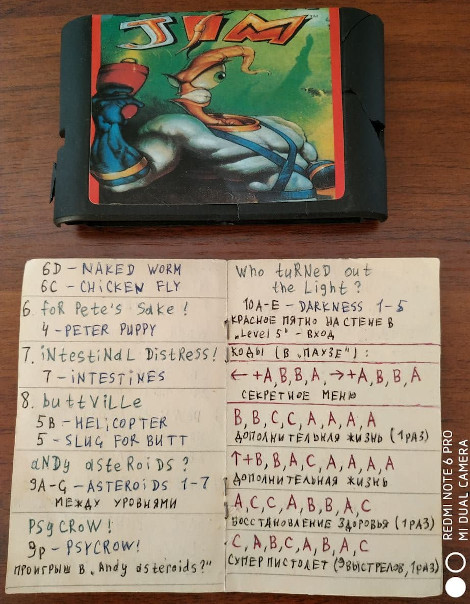 JIM
6D - NAKED WORM
6C - CHICKEN FLY
6. foR Pete's Sake!
4 - PETER PUPPY
7. iNtestiNaL DistRess!
7 - INTESTINES
8. buttViLLe
5B - HELICOPTER
5 - SLUG FOR BUTT
aNDy asteRoiDs?
9A-G - ASTEROIDS 1-7
МЕЖДУ УРОВНЯМИ
PsyCRoW!
9p - PSYCROW!
ПРОИГРЫШ В „Andy asteroids?"
Who tuRNeD out
the Light?
10A-E - DARKNESS 1-5
КРАСНОЕ ПЯТНО НА СТЕНЕ В
„Level 5" - ВХОД
КОДЫ (В „ПАУЗЕ"):
←+A,B,B,A,→+A,B,B,A
СЕКРЕТНОЕ МЕНЮ
B,B,C,C,A,A,A,A
ДОПОЛНИТЕЛЬНАЯ ЖИЗНЬ (1РАЗ)
↑+B,B,A,C,A,A,A,A
ДОПОЛНИТЕЛЬНАЯ ЖИЗНЬ
A,C,C,A,B,B,A,C
ВОССТАНОВЛЕНИЕ ЗДОРОВЬЯ (1РАЗ)
C,A,B,C,A,B,A,C
СУПЕРПИСТОЛЕТ (9ВЫСТРЕЛОВ,1РАЗ)
REDMI NOTE 6 PRO
MI DUAL CAMERA